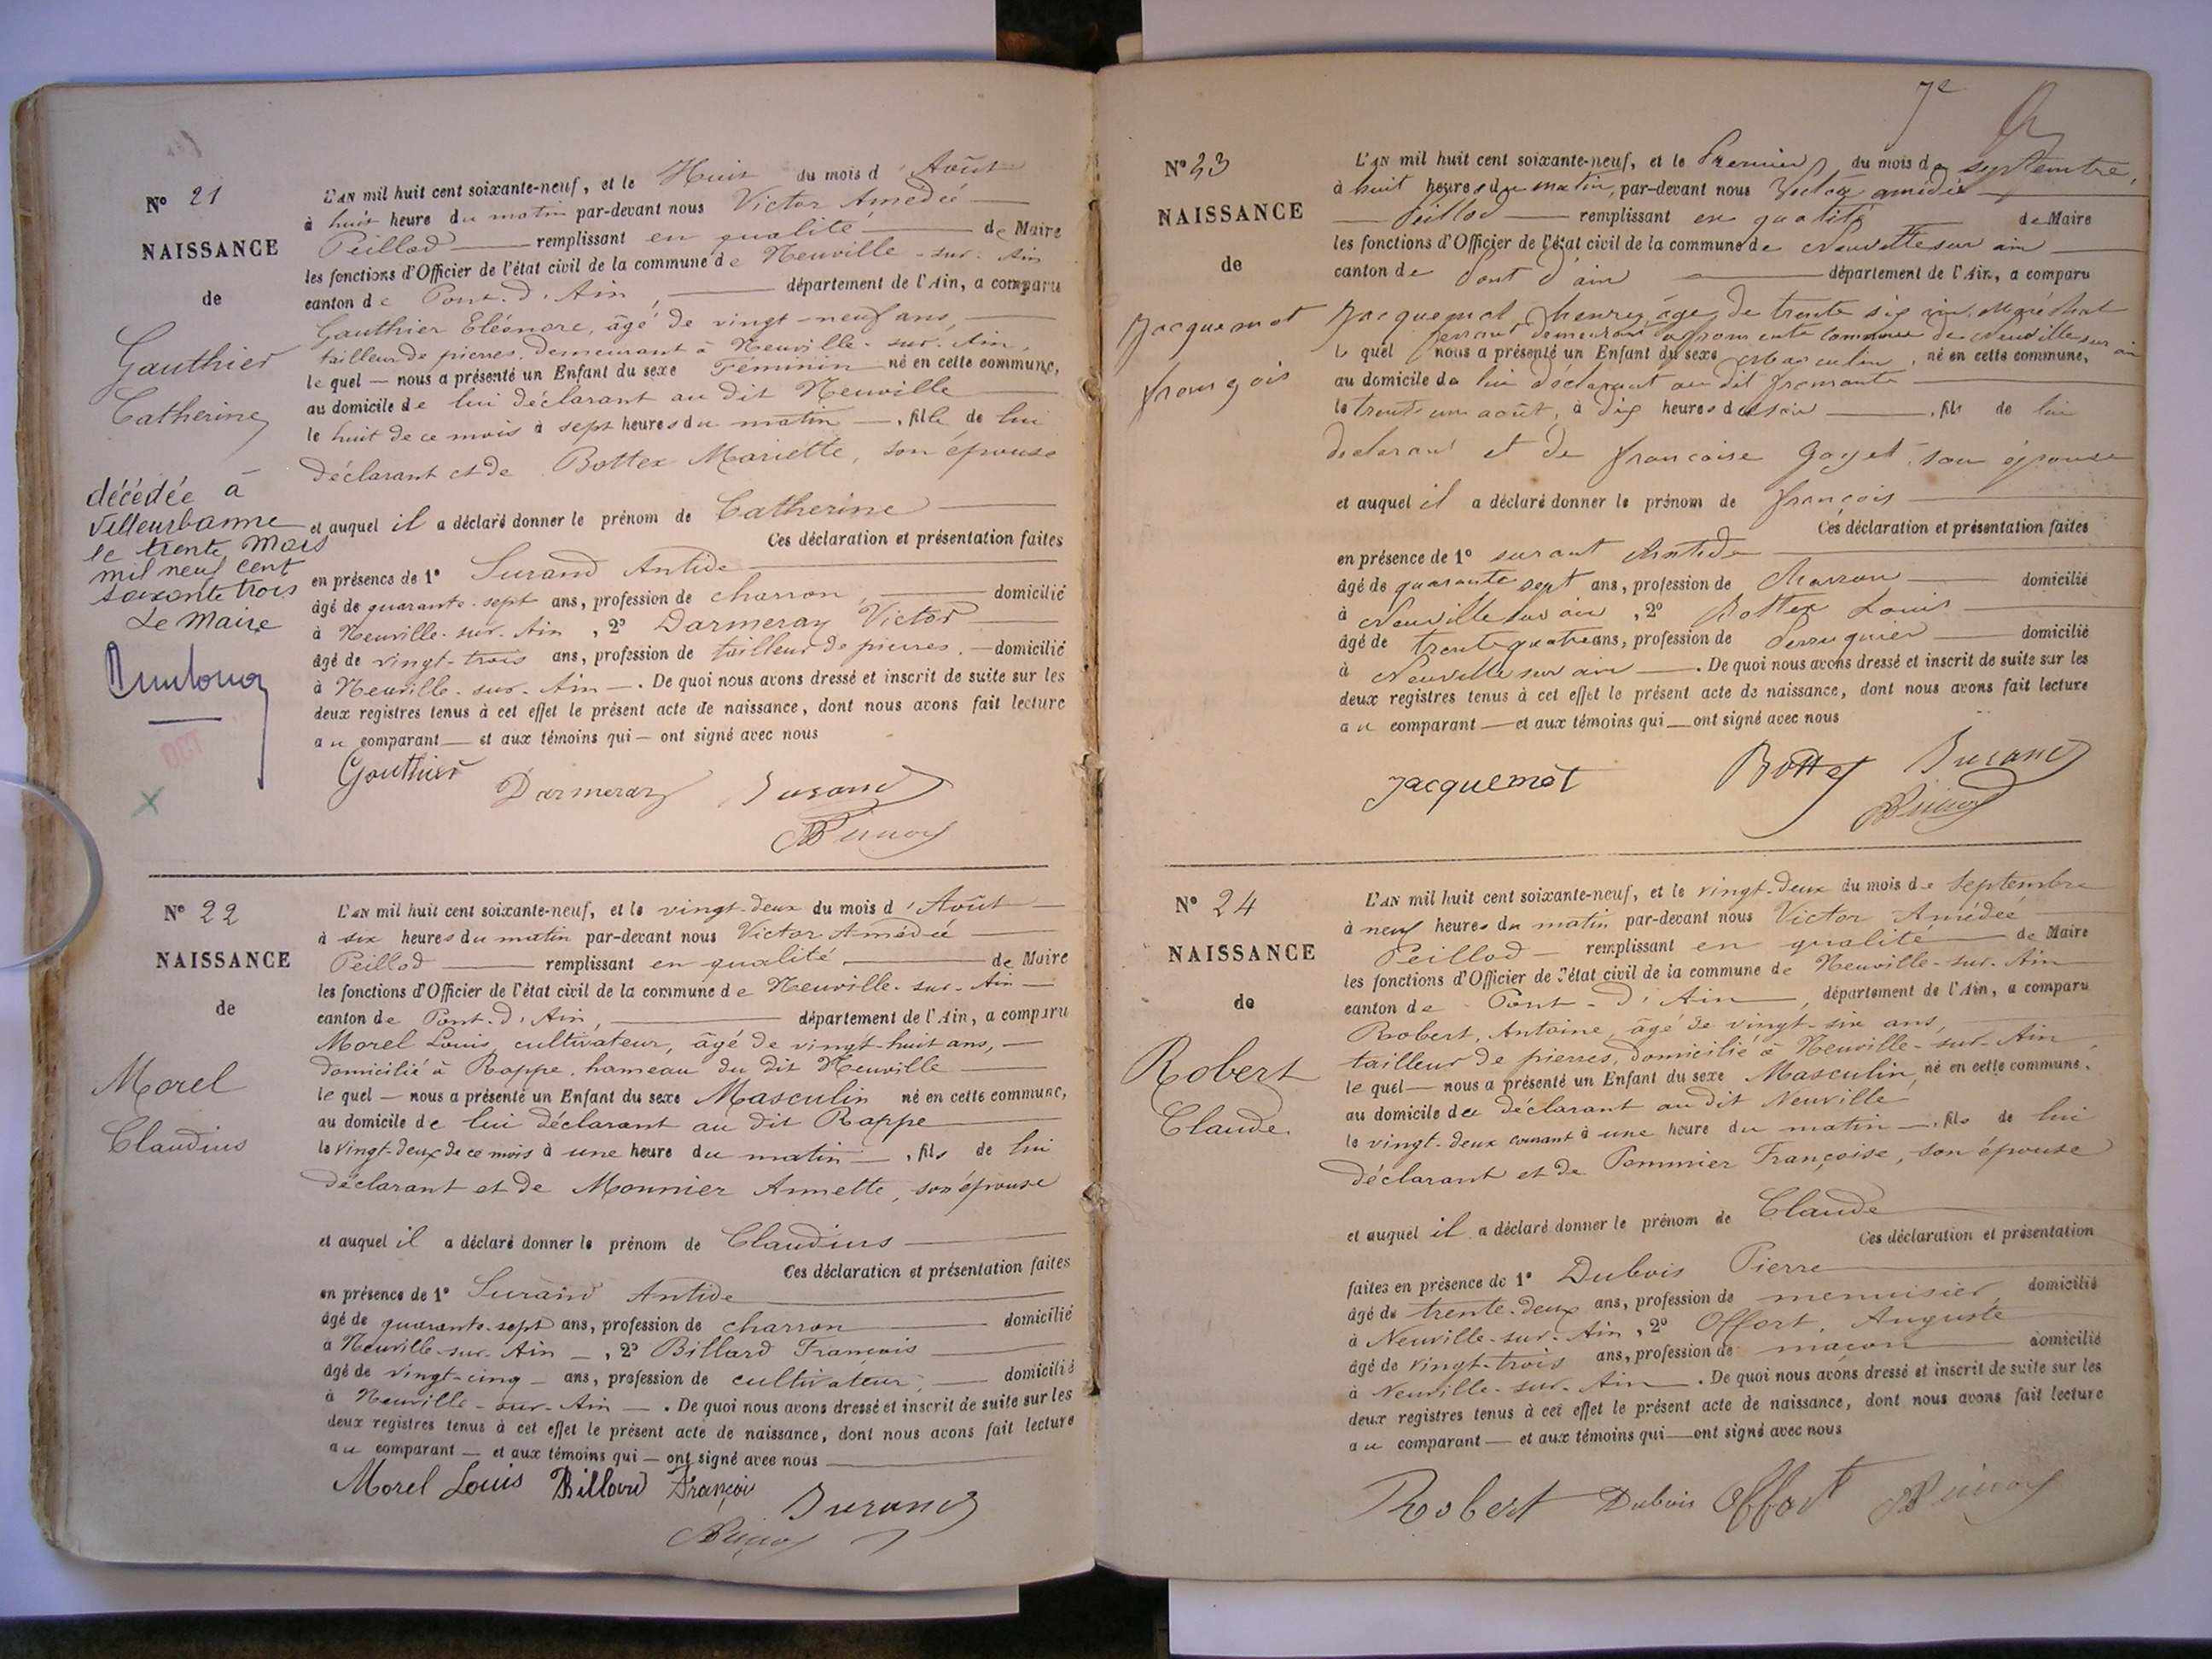 Nº 21
NAISSANCE
de
Gauthier
Catherine
décédée à
Villeurbanne
le trente Mars
mil neuf cent
soixante trois
Le Maire
L'AN mil huit cent soixante-neuf, et le Huit du mois d'Août
à huit heure du matin par-devant nous Victor Amédée
Peillod remplissant en qualité de Maire
les fonctions d'Officier de l'état civil de la commune de Neuville-sur-Ain
canton de Pont-d'Ain, département de l'Ain, a comparu
Gauthier Eléonore, âgé de vingt-neuf ans,
tailleur de pierres, demeurant à Neuville-sur-Ain,
le quel — nous a présenté un Enfant du sexe Féminin né en cette commune,
au domicile de lui déclarant au dit Neuville
le huit de ce mois à sept heures du matin —, fille de lui
déclarant et de Bottex Mariette, son épouse
et auquel il a déclaré donner le prénom de Catherine
Ces déclaration et présentation faites
en présence de 1º Surand Antide
âgé de quarante-sept ans, profession de charron, domicilié
à Neuville-sur-Ain, 2º Darmeray Victor
âgé de vingt-trois ans, profession de tailleur de pierres. — domicilié
à Neuville-sur-Ain —. De quoi nous avons dressé et inscrit de suite sur les
deux registres tenus à cet effet le présent acte de naissance, dont nous avons fait lecture
au comparant — et aux témoins qui — ont signé avec nous
Gauthier
Darmeray Surand
Nº 22
NAISSANCE
de
Morel
Claudius
L'AN mil huit cent soixante-neuf, et le vingt-deux du mois d'Août
à six heures du matin par-devant nous Victor Amédée
Peillod remplissant en qualité de Maire
les fonctions d'Officier de l'état civil de la commune de Neuville-sur-Ain
canton de Pont-d'Ain, département de l'Ain, a comparu
Morel Louis, cultivateur, âgé de vingt-huit ans,
domicilié à Rappe, hameau du dit Neuville
le quel — nous a présenté un Enfant du sexe Masculin né en cette commune,
au domicile de lui déclarant au dit Rappe
le vingt-deux de ce mois à une heure du matin —, fils de lui
déclarant et de Monnier Annette, son épouse
et auquel il a déclaré donner le prénom de Claudius
Ces déclaration et présentation faites
en présence de 1º Surand Antide
âgé de quarante-sept ans, profession de charron domicilié
à Neuville-sur-Ain —, 2º Billard François
âgé de vingt-cinq — ans, profession de cultivateur, domicilié
à Neuville-sur-Ain —. De quoi nous avons dressé et inscrit de suite sur les
deux registres tenus à cet effet le présent acte de naissance, dont nous avons fait lecture
au comparant — et aux témoins qui — ont signé avec nous
Morel Louis Billard François
Surand
7e
Nº 23
NAISSANCE
de
Jacquemot
françois
L'AN mil huit cent soixante-neuf, et le Premier du mois de septembre,
à huit heures du matin, par-devant nous Victor amédée
Peillod remplissant en qualité de Maire
les fonctions d'Officier de l'état civil de la commune de Neuville sur ain
canton de Pont d'ain département de l'Ain, a comparu
Jacquemot henry, âgé de trente six ans, Maréchal
ferrant demeurant à fromente commune de Neuville sur ain
le quel nous a présenté un Enfant du sexe Masculin, né en cette commune,
au domicile de lui déclarant au dit fromente
le trente un août, à dix heures du soir, fils de lui
déclarant et de françoise Goyet, son épouse
et auquel il a déclaré donner le prénom de françois
Ces déclaration et présentation faites
en présence de 1º surant Antide
âgé de quarante sept ans, profession de Charron domicilié
à Neuville sur ain, 2º Bottex Louis
âgé de trente quatre ans, profession de Perruquier domicilié
à Neuville sur ain —. De quoi nous avons dressé et inscrit de suite sur les
deux registres tenus à cet effet le présent acte de naissance, dont nous avons fait lecture
au comparant — et aux témoins qui — ont signé avec nous
Jacquemot Bottex Surand
Nº 24
NAISSANCE
de
Robert
Claude
L'AN mil huit cent soixante-neuf, et le vingt-deux du mois de Septembre
à neuf heures du matin par-devant nous Victor Amédée
Peillod — remplissant en qualité de Maire
les fonctions d'Officier de l'état civil de la commune de Neuville-sur-Ain
canton de Pont-d'Ain, département de l'Ain, a comparu
Robert, Antoine, âgé de vingt-six ans,
tailleur de pierres, domicilié à Neuville-sur-Ain,
le quel — nous a présenté un Enfant du sexe Masculin, né en cette commune,
au domicile du déclarant au dit Neuville
le vingt-deux courant à une heure du matin —, fils de lui
déclarant et de Pommier Françoise, son épouse
et auquel il a déclaré donner le prénom de Claude
Ces déclaration et présentation
faites en présence de 1º Dubois Pierre
âgé de trente-deux ans, profession de menuisier, domicilié
à Neuville-sur-Ain, 2º Offort, Auguste
âgé de vingt-trois ans, profession de maçon domicilié
à Neuville-sur-Ain —. De quoi nous avons dressé et inscrit de suite sur les
deux registres tenus à cet effet le présent acte de naissance, dont nous avons fait lecture
au comparant — et aux témoins qui — ont signé avec nous
Robert Dubois Offort